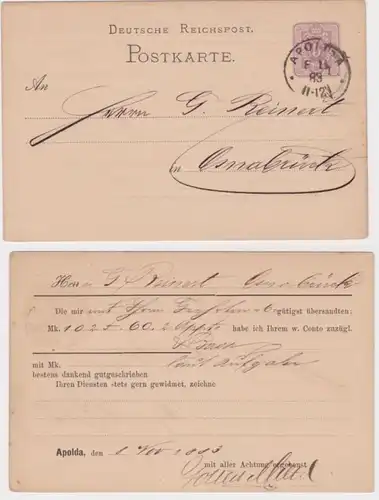 DEUTSCHE REICHSPOST.
POSTKARTE.
APOLDA
83
11-12V
An
Herrn G. Reinert
Osnabrück
Herrn G. Reinert Osnabrück
Die mir mit Ihrem gütigst übersandten;
Mk. 102 60. 2 habe ich Ihrem w. Conto zuzügl.
mit Mk. laut Aufgabe
bestens dankend gutgeschrieben
Ihren Diensten stets gern gewidmet, zeichne
Apolda, den 1 Nov 1883
mit aller Achtung ergebenst